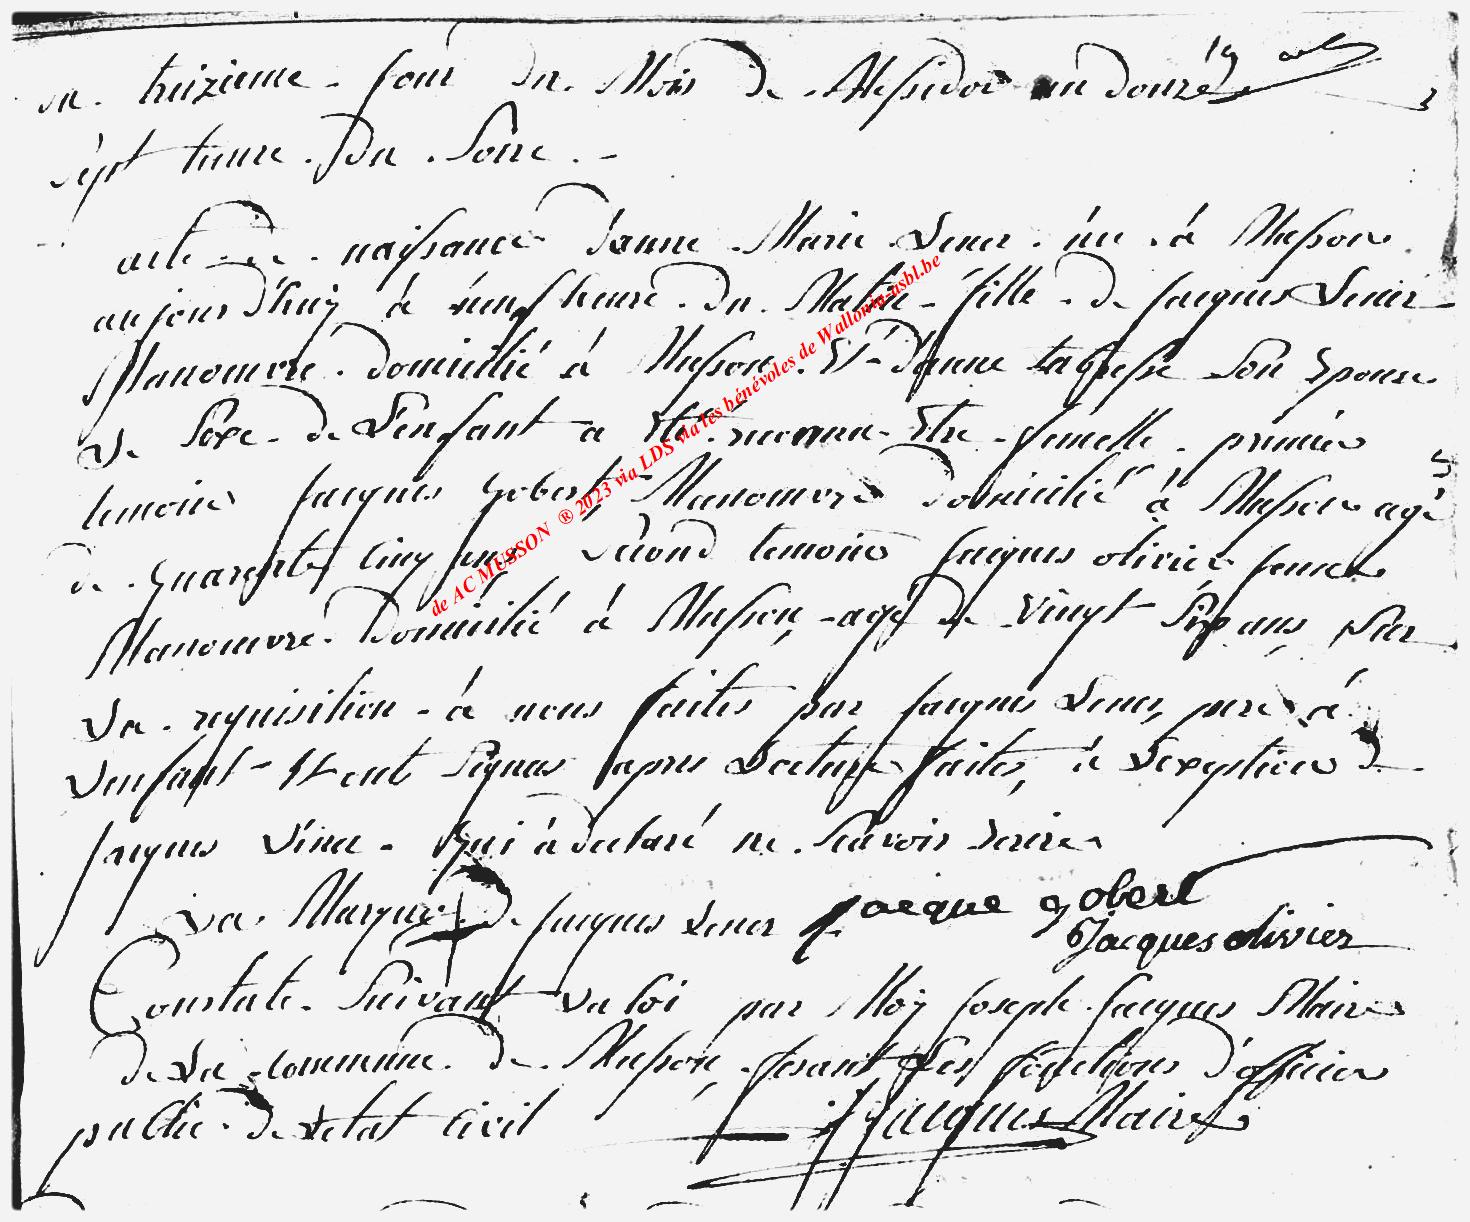 du treizieme jour du Mois de Messidor an douze 19
sept heure du Soire
acte de naissance Janne Marie Lener née à Musson
aujourd'huÿ à neuf heure du Matin fille de Jacques Lener
Manouvre domicillié à Musson Et Janne Son Epouse
Le Sexe de L'enfant a Eté reconnu Etre femelle premier
temoins Jacques gobert Manouvre domicilié à Musson agé
de quarente Cinq ans Second temoins Jacques olivier
Manouvre domicilié à Musson, agé de vingt Six ans, Sur
La requisition à nous faites par Jacques Lener, pere à
L'enfant Et ont Signas apres Lecture faites, à L'exception de
Jacques Lener qui à declaré ne Scavoir Ecrire
La Marque de Jacques Lener Jacque gobert
Jacques olivier
Constate Suivant La loi par Moÿ Joseph Jacques Maire
de La commune de Musson fesant Les fonctions d'officier
public de Letat Civil J Jacques Maire
de AC MUSSON ® 2023 via LDS via les bénévoles de Wallonia-asbl.be